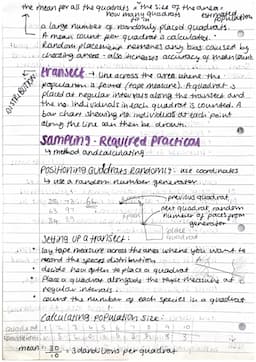 the mean for all the quadrats × the size of the area ÷
how many quadrats
estimated population
a large number of randomly placed quadrats.
A mean count per quadrat is calculated.
Random placement removes any bias caused by
choosing areas - also increases accuracy of them
DISTRIBUTION
transect → line across the area where the
population is found (tape measure). A quadrat is
placed at regular intervals along the transect and
the no. individuals in each quadrat is counted. A
bar chart showing no. individuals at each point
along the line can then be drawn.
Sampling - Required Practical
↳ method and calculating
Positioning Quadrats Randomly: use coordinates
↳ use a random number generator
previous quadrat
per quadrat, random
number of paces from
generator
place
quadrat
Setting up a transect:
• lay tape measure across the area where you want to
record the species distribution
• decide how often to place a quadrat
• Place a quadrat alongside the tape measure at
regular intervals
• count the number of each species in a quadrat
Calculating population size:
quadrat 1 2 3 4 5 6 7 8 9 10
mean = 30/10 = 3 dandelions per quadrat